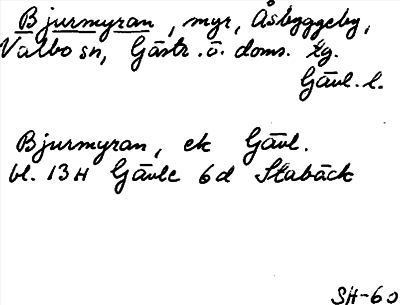 Bjurmyran, myr, Åsbyggeby,
Valbo sn, Gästr. ö. doms. tg.
Gävl. l.
Bjurmyran, ek Gävl.
bl. 13H Gävle 6d Stabäck
SH-60